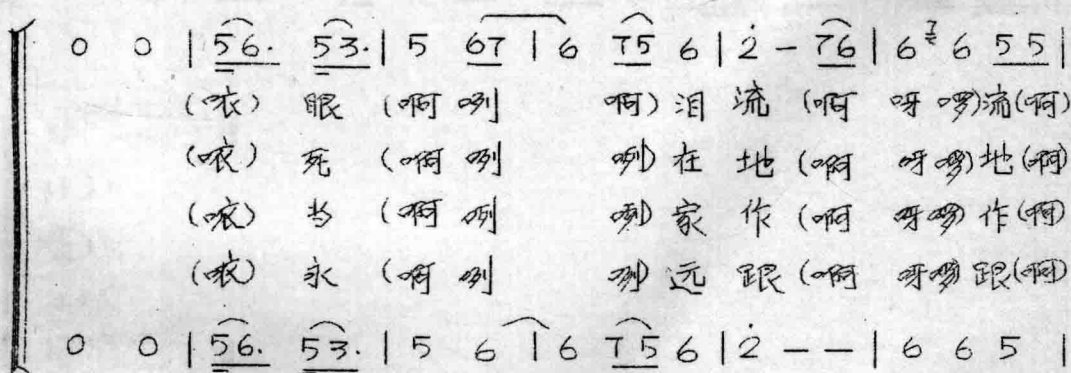 0 0 | 5 6. 5 3. | 5 6 7 | 6 7 5 6 | 2̇ - 7 6 | 6 6 5 5 |
(哝) 眼 (啊 咧 啊) 泪 流 (啊 呀 啰) 流 (啊)
(哝) 死 (啊 咧 咧) 在 地 (啊 呀 啰) 地 (啊)
(哝) 当 (啊 咧 咧) 家 作 (啊 呀 啰) 作 (啊)
(哝) 永 (啊 咧 咧) 远 跟 (啊 呀 啰 跟 (啊)
0 0 | 5 6. 5 3. | 5 6 | 6 7 5 6 | 2̇ - - | 6 6 5 |